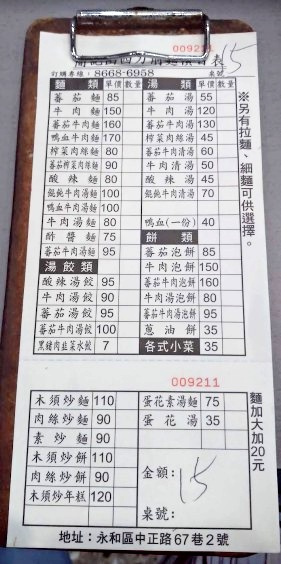 009211
訂購專線：8668-6958 桌號 15
麵類 單價 數量 湯類 單價 數量
蕃茄麵 85 蕃茄湯 55
牛肉麵 150 牛肉湯 120
蕃茄牛肉麵 160 蕃茄牛肉湯 130
鴨血牛肉麵 170 榨菜肉絲湯 45
榨菜肉絲麵 80 蕃茄牛肉清湯 60
蕃茄榨菜肉絲麵 90 牛肉清湯 50
酸辣麵 80 酸辣湯 45
餛飩牛肉湯麵 100 餛飩牛肉清湯 70
鴨血牛肉湯麵 100
牛肉湯麵 80 鴨血(一份) 40
酢醬麵 75 餅類
蕃茄牛肉湯麵 95 蕃茄泡餅 85
湯餃類 牛肉泡餅 150
酸辣湯餃 95 蕃茄牛肉泡餅 160
牛肉湯餃 90 牛肉湯泡餅 80
蕃茄湯餃 95 蕃茄牛肉湯泡餅 95
蕃茄牛肉湯餃 100 蔥油餅 35
黑豬肉韭菜水餃 7 各式小菜 35
※另有拉麵、細麵可供選擇。
009211
木須炒麵 110 蛋花素湯麵 75
肉絲炒麵 90 蛋花湯 35
素炒麵 90
木須炒餅 110
肉絲炒餅 90
木須炒年糕 120
金額：15
桌號：
麵加大加20元
地址：永和區中正路67巷2號